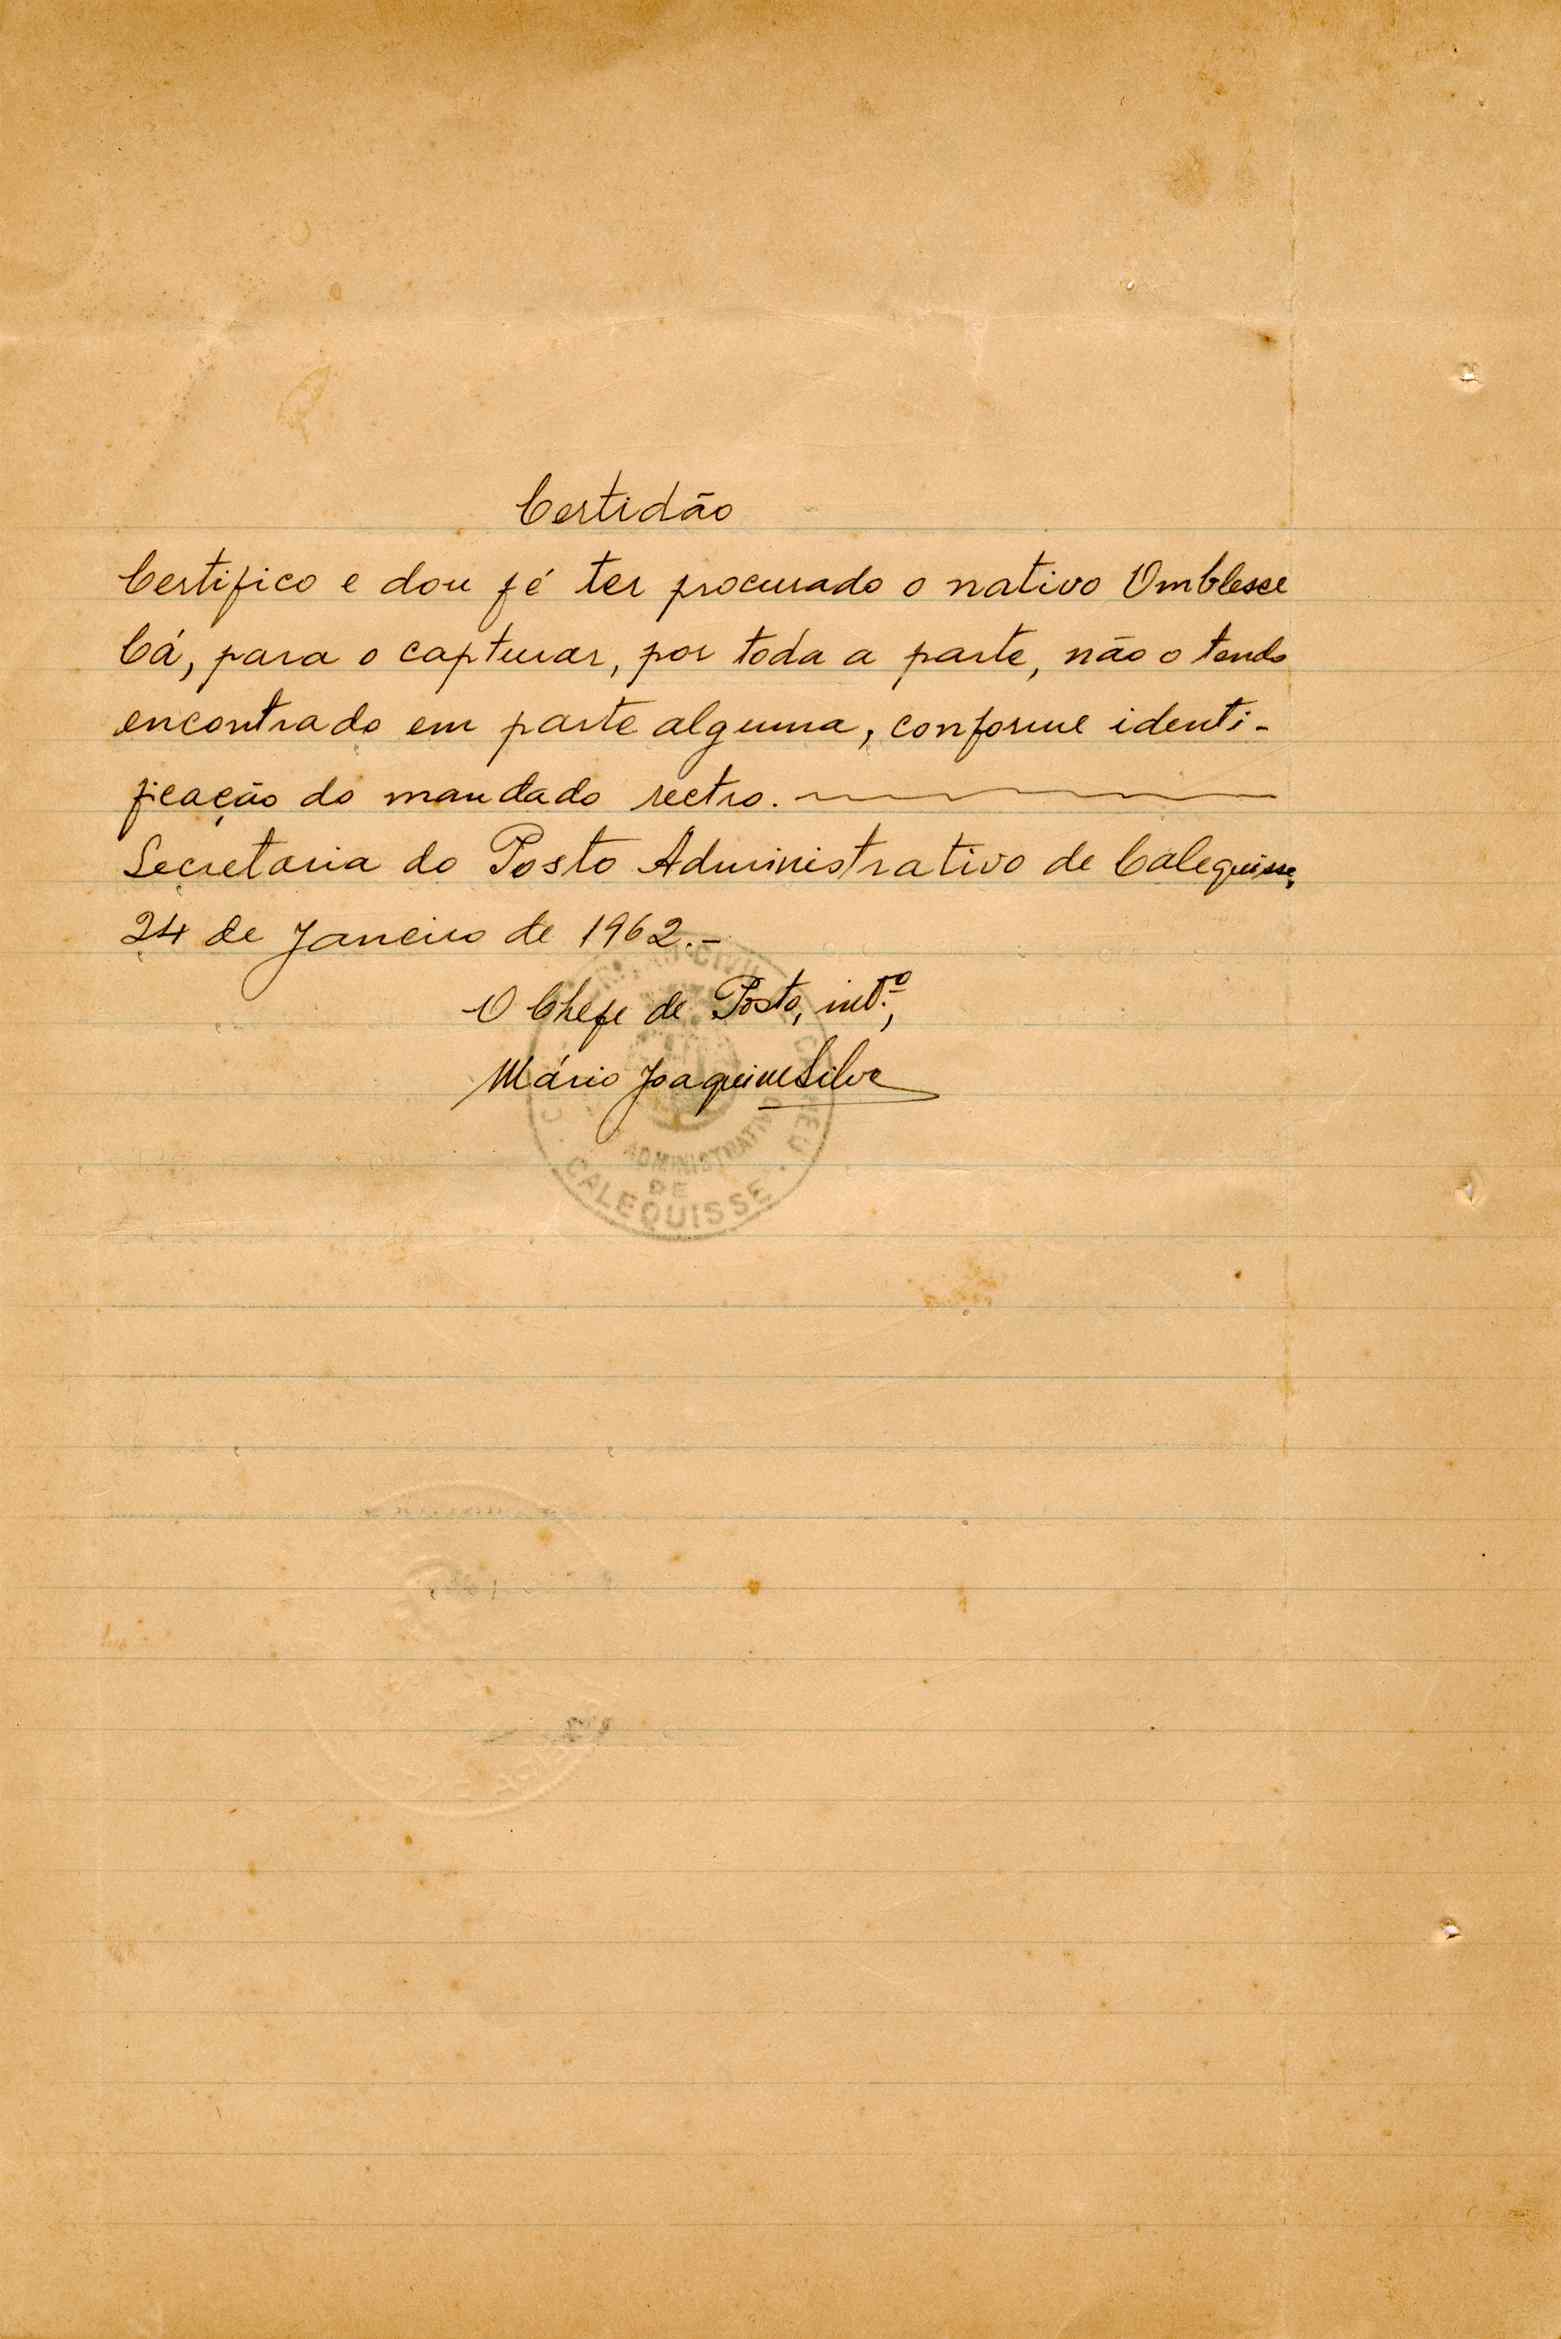 Certidão
Certifico e dou fé ter procurado o nativo
Cá, para o capturar, por toda a parte, não o tendo
encontrado em parte alguma, conforme identi-
ficação do mandado rectro.
Secretaria do Posto Administrativo de Calequisse,
24 de Janeiro de 1962.-
O Chefe de Posto, intº.,
Mário Joaquim Silva
ADMINISTRATIVO
DE
CALEQUISSE